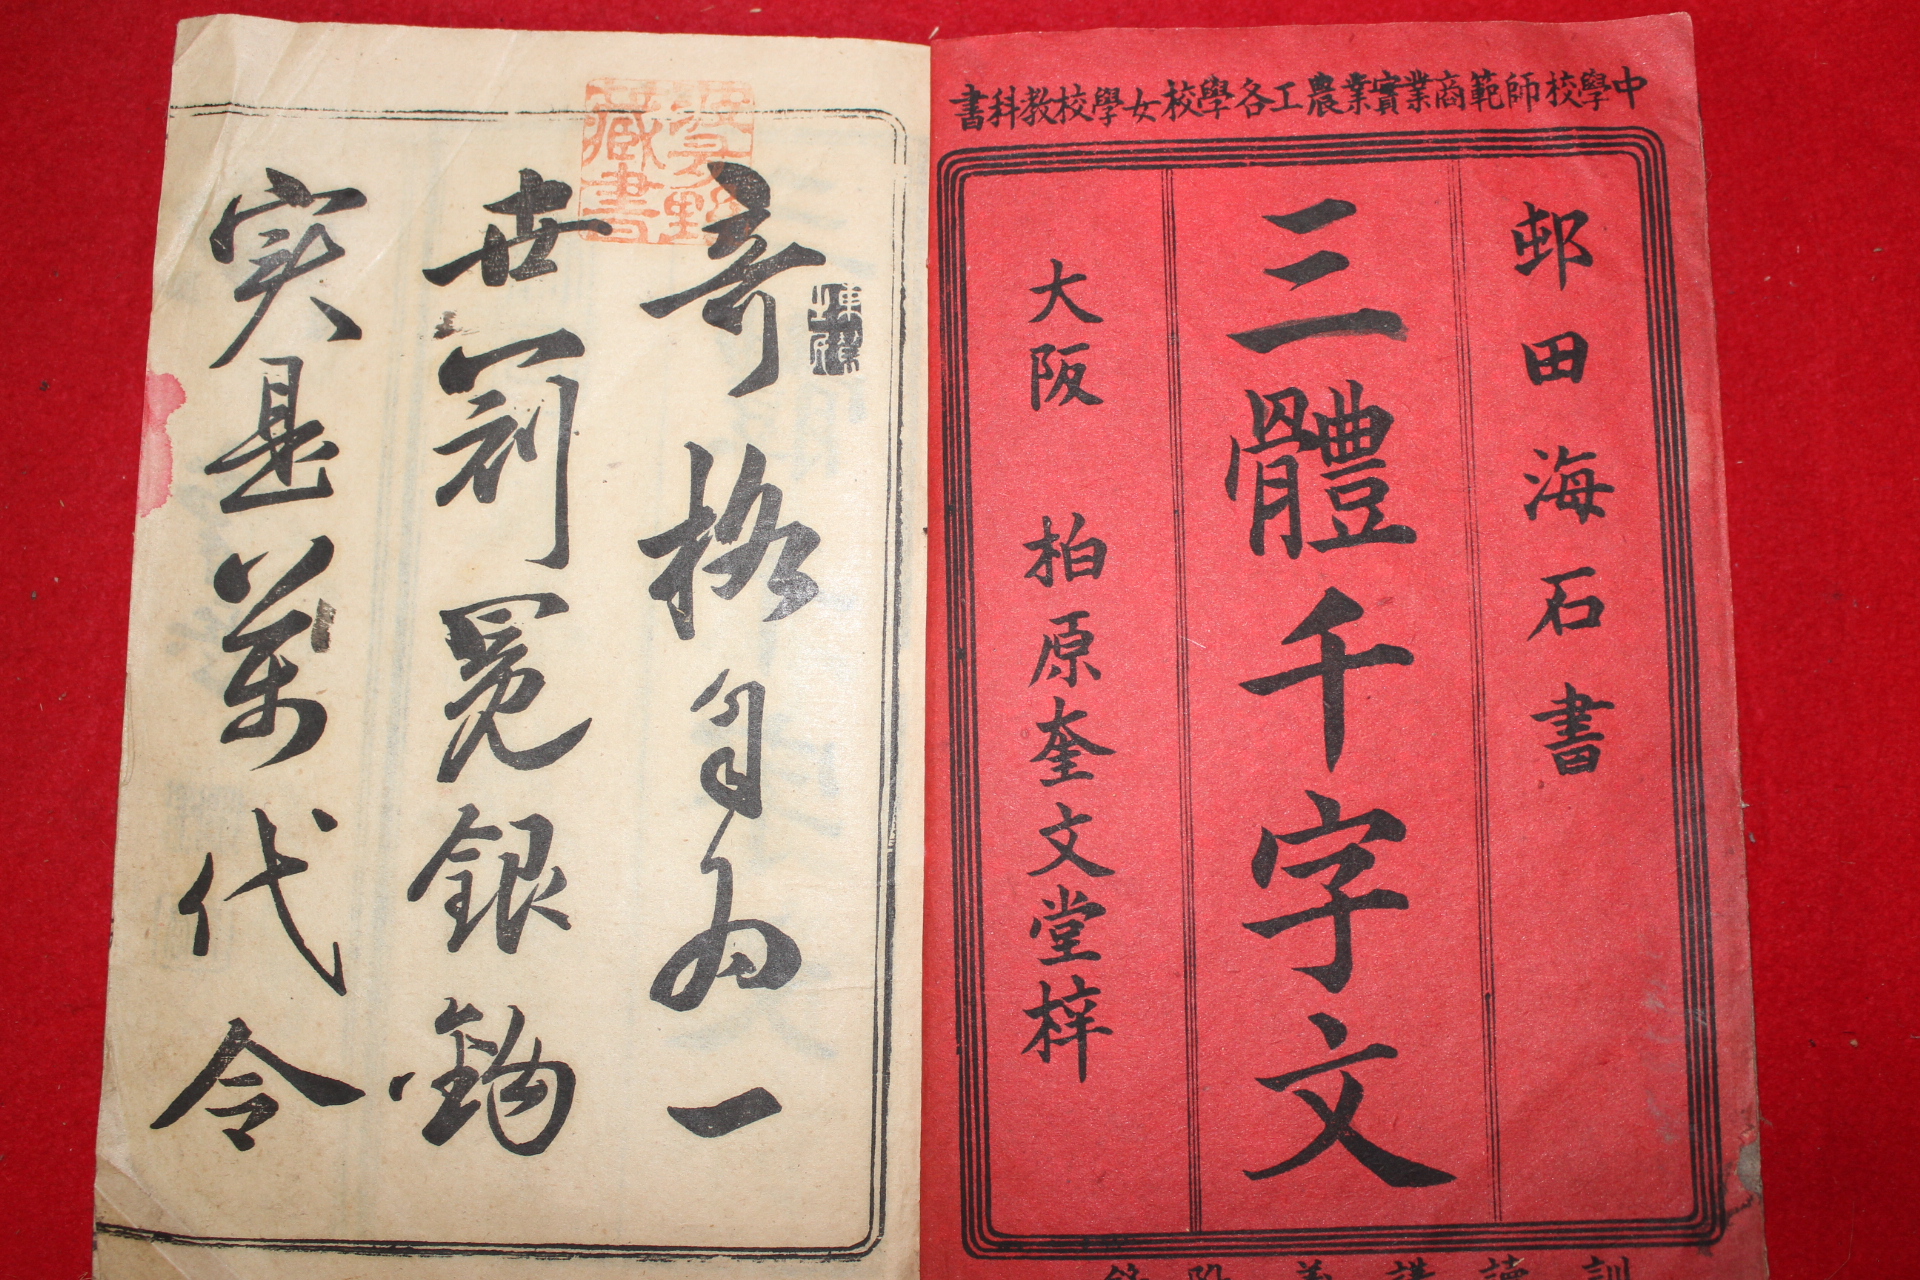 中學校師範商業實業農工各學校女學校教科書
邨田海石書
三體千字文
大阪 柏原奎文堂梓
訓讀講義
奇格自為一
世罰冕銀鉤
実是萬代令
藏書